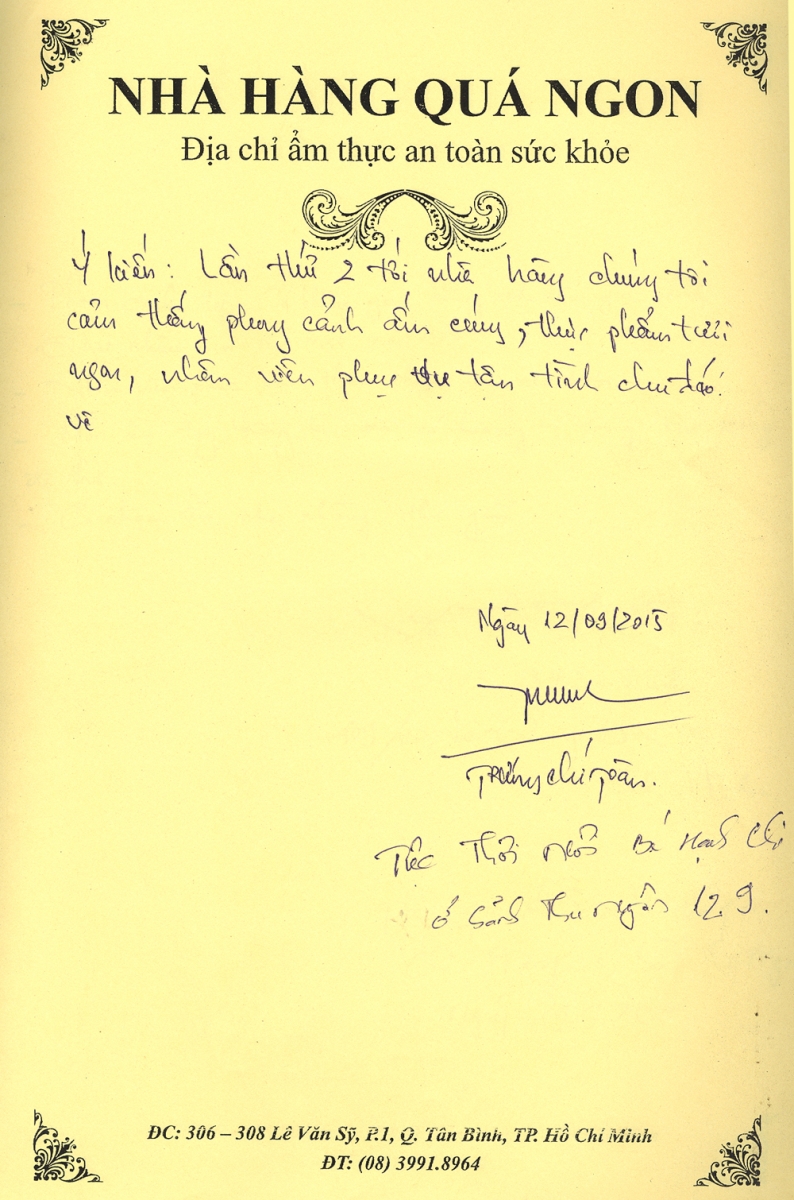 NHÀ HÀNG QUÁ NGON
Địa chỉ ẩm thực an toàn sức khỏe
Ý kiến: Lần thứ 2 tới nhà hàng chúng tôi
cảm thấy phong cảnh ấm cúng, thực phẩm tươi
ngon, nhân viên phục vụ tận tình chu đáo.
Về
Ngày 12/09/2015
Trương Chí Toàn.
Tiệc Thôi nôi Bé Hạnh Chi
ở sảnh Thu ngân 12.9.
ĐC: 306 – 308 Lê Văn Sỹ, P.1, Q. Tân Bình, TP. Hồ Chí Minh
ĐT: (08) 3991.8964